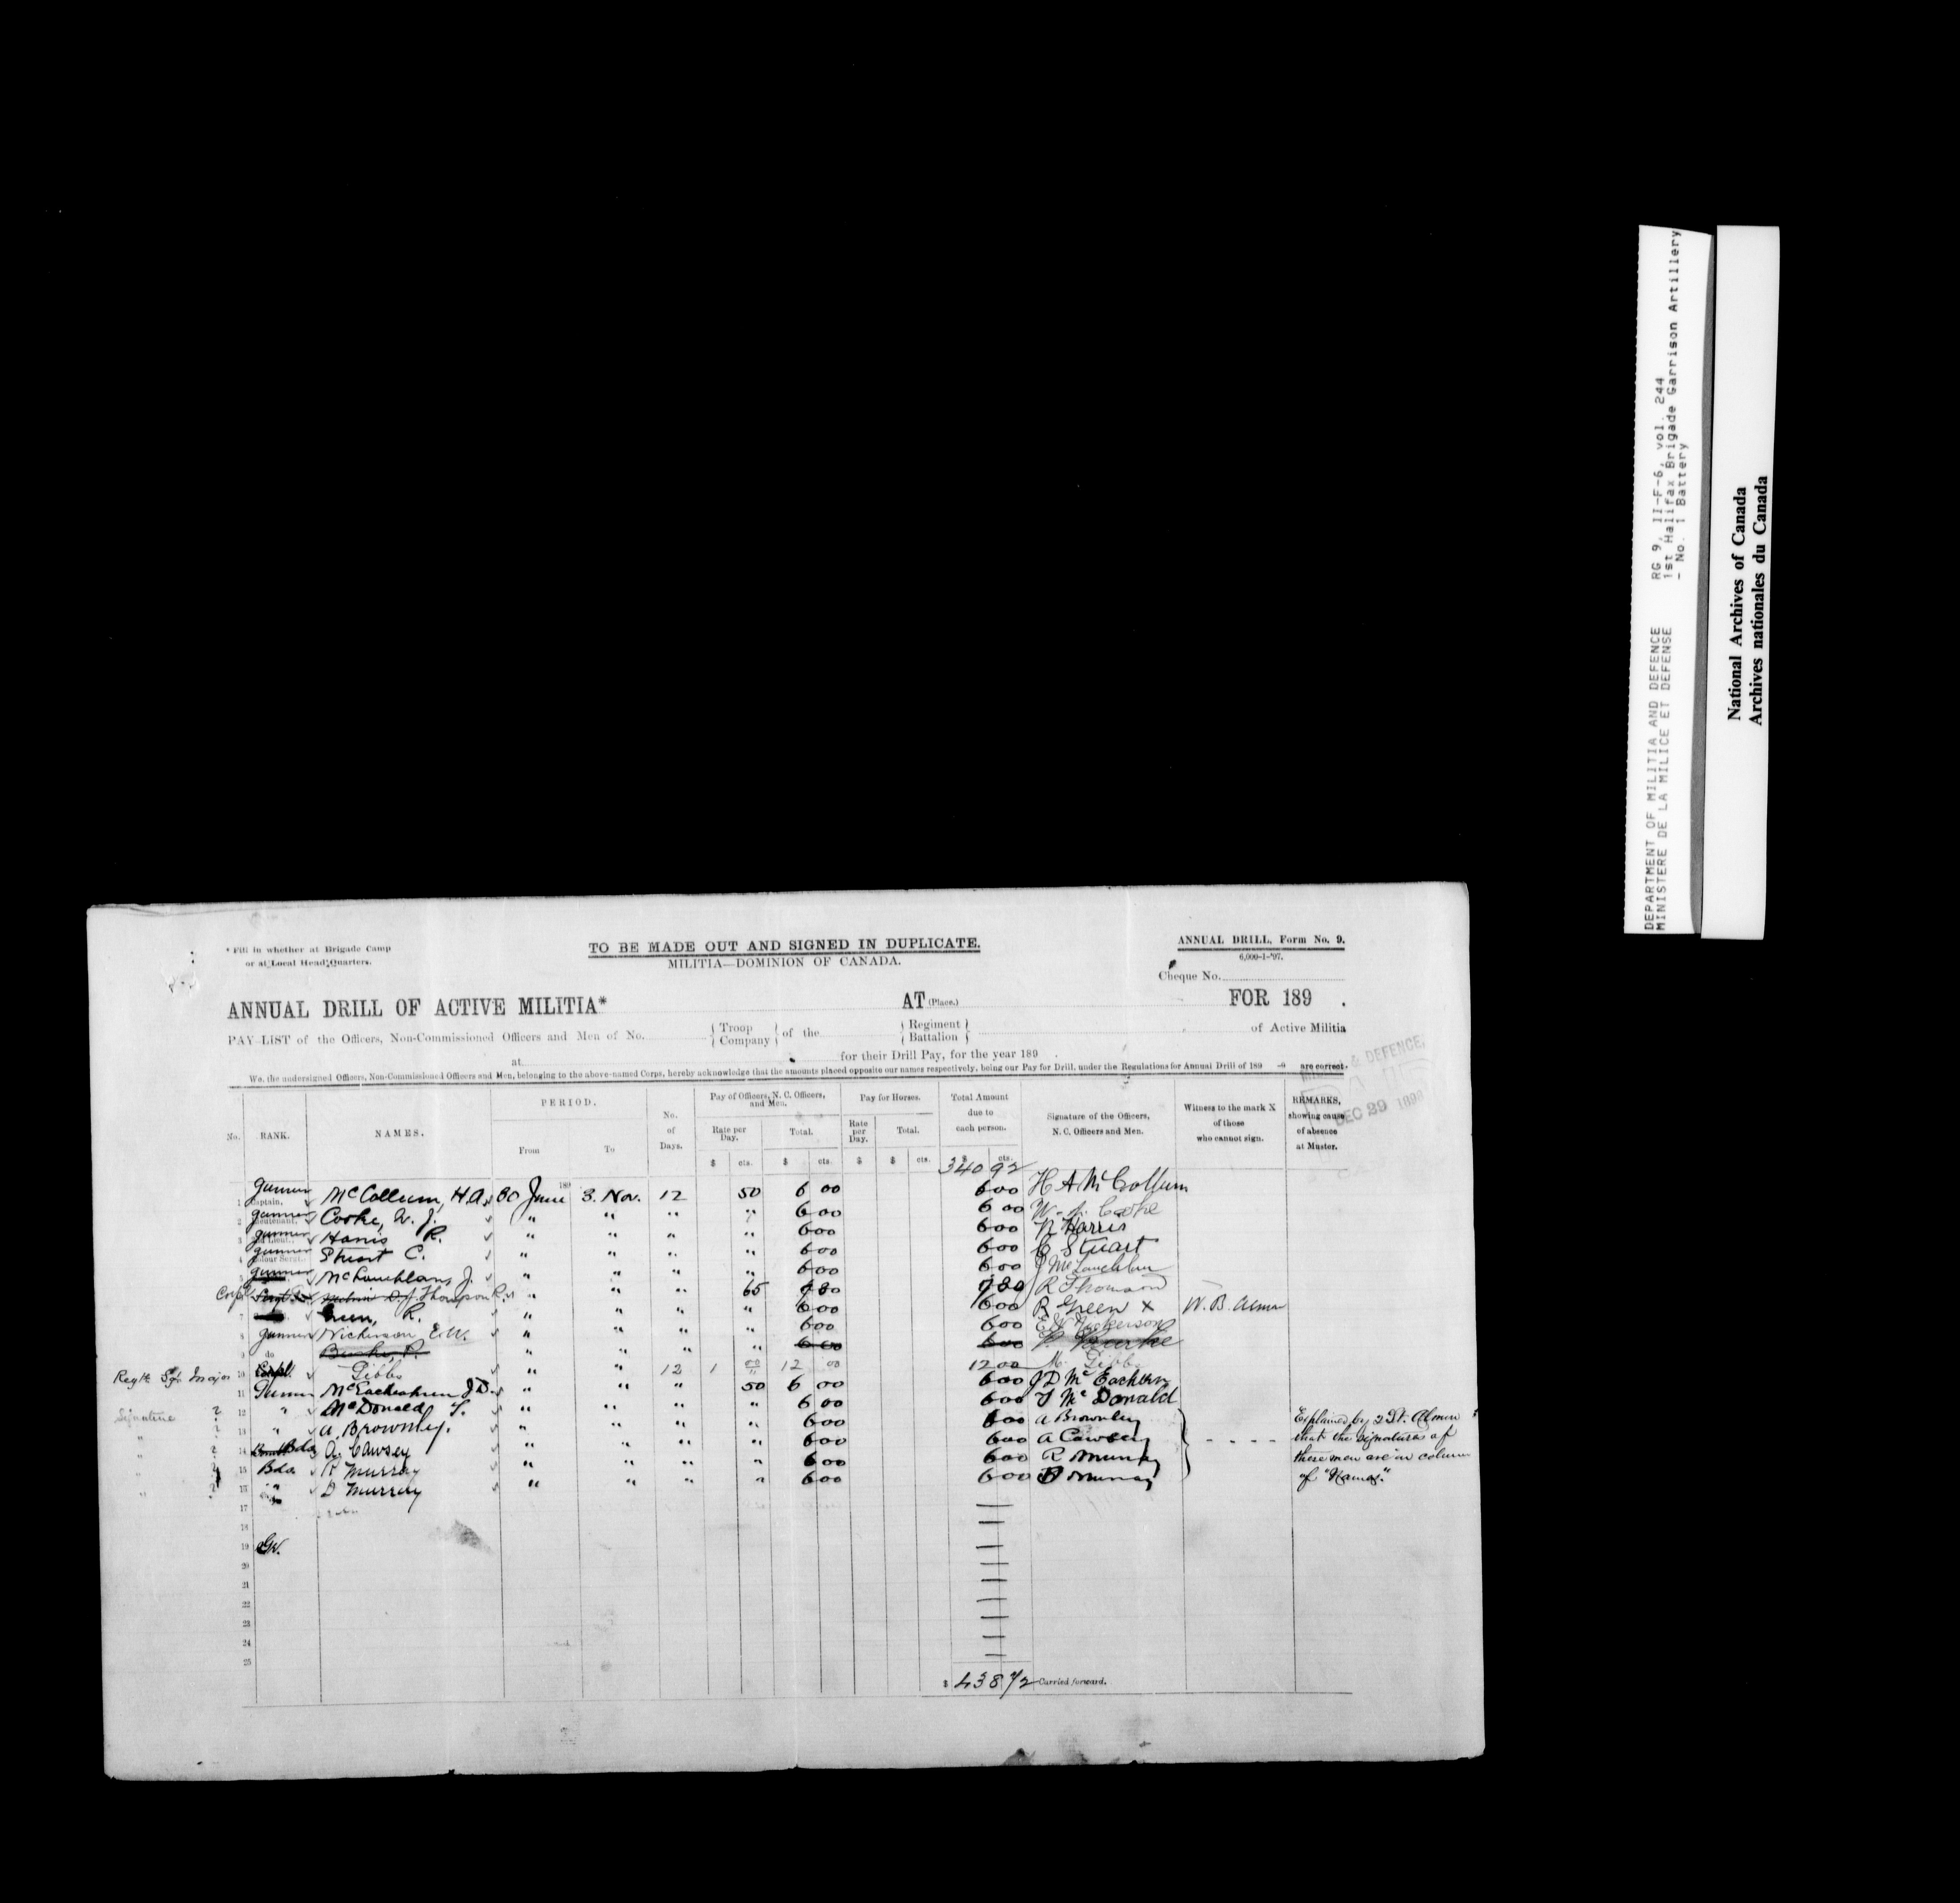 DEPARTMENT OF MILITIA AND DEFENCE RG 9, II-F-6, vol. 244
MINISTERE DE LA MILICE ET DEFENSE 1st Halifax Brigade Garrison Artillery
- No. 1 Battery
National Archives of Canada
Archives nationales du Canada
* Fill in whether at Brigade Camp
or at Local Head Quarters.
TO BE MADE OUT AND SIGNED IN DUPLICATE.
MILITIA—DOMINION OF CANADA.
ANNUAL DRILL, Form No. 9.
6,000-1-'97.
Cheque No.
ANNUAL DRILL OF ACTIVE MILITIA* AT (Place.) FOR 189 .
PAY-LIST of the Officers, Non-Commissioned Officers and Men of No. { Troop Company } of the { Regiment Battalion } of Active Militia
at for their Drill Pay, for the year 189 .
We, the undersigned Officers, Non-Commissioned Officers and Men, belonging to the above-named Corps, hereby acknowledge that the amounts placed opposite our names respectively, being our Pay for Drill, under the Regulations for Annual Drill of 189 are correct.
& DEFENCE,
DEC 29 189
No. RANK. NAMES. PERIOD. From To No. of Days. Pay of Officers, N. C. Officers, and Men. Rate per Day. Total. Pay for Horses. Rate per Day. Total. Total Amount due to each person. Signature of the Officers, N. C. Officers and Men. Witness to the mark X of those who cannot sign. REMARKS, showing cause of absence at Muster.
$ cts. $ cts. $ $ cts. $ cts.
340 92
1 Gunner McCollum, H.A. 30 June 189 3. Nov. 12 50 6 00 6 00 H A McCollum
2 Gunner Cooke, W. J. " " " " 6 00 6 00 W. J. Cooke
3 Gunner Harris R. " " " " 6 00 6 00 R Harris
4 Gunner Stuart C. " " " " 6 00 6 00 C Stuart
5 Gunner McLauchlan, J. " " " " 6 00 6 00 J McLauchlan
Corpl Thompson R. " " " 65 7 80 7 80 R Thomson
7 Green, R. " " " " 6 00 6 00 R Green X W. B. Almon
8 Gunner Nickerson E.W. " " " " 6 00 6 00 E W Nickerson
9 do Burke, P. " " " " 6 00 6 00 P. Bourke
Regtl Sgt Major 10 Corpl. Gibbs " " 12 1 00 12 00 12 00 M. Gibbs
11 Gunner McEachern J D. " " " 50 6 00 6 00 J D McEachern
12 " McDonald T. " " " " 6 00 6 00 T McDonald
Signature ? 13 " A. Brownley. " " " " 6 00 6 00 A Brownley
" ? 14 Bdr A. Cawsey " " " " 6 00 6 00 A Cawsey
" ? 15 Bdr R Murray " " " " 6 00 6 00 R Murray
" ? " D Murray " " " " 6 00 6 00 D Murray
Explained by 2 Lt. Almon
that the signatures of
these men are in column
of "Names."
17
18
19 Gr.
20
21
22
23
24
25
$ 438 72 Carried forward.